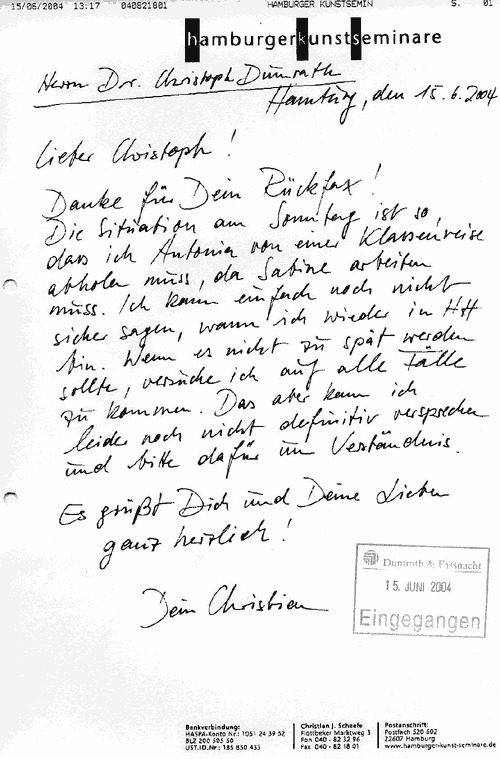 15/06/2004 13:17 040821801 HAMBURGER KUNSTSEMIN S. 01
hamburgerkunstseminare
Herrn Dr. Christoph Dumrath
Hamburg, den 15.6.2004
Lieber Christoph!
Danke für Dein Rückfax!
Die Situation am Sonntag ist so,
dass ich Antonia von einer Klassenreise
abholen muss, da Sabine arbeiten
muss. Ich kann einfach noch nicht
sicher sagen, wann ich wieder in HH
bin. Wenn es nicht zu spät werden
sollte, versuche ich auf alle Fälle
zu kommen. Das aber kann ich
leider noch nicht definitiv versprechen
und bitte dafür um Verständnis.
Es grüßt Dich und Deine Lieben
ganz herzlich!
Dein Christian
Dumrath & Fassnacht
15. JUNI 2004
Eingegangen
Bankverbindung:
HASPA-Konto Nr.: 1051 24 39 52
BLZ 200 505 50
UST.ID.Nr.: 185 850 433
Christian J. Scheefe
Flottbeker Marktweg 3
Fon 040 - 82 32 96
Fax 040 - 82 18 01
Postanschrift:
Postfach 520 602
22607 Hamburg
www.hamburger-kunst-seminare.de